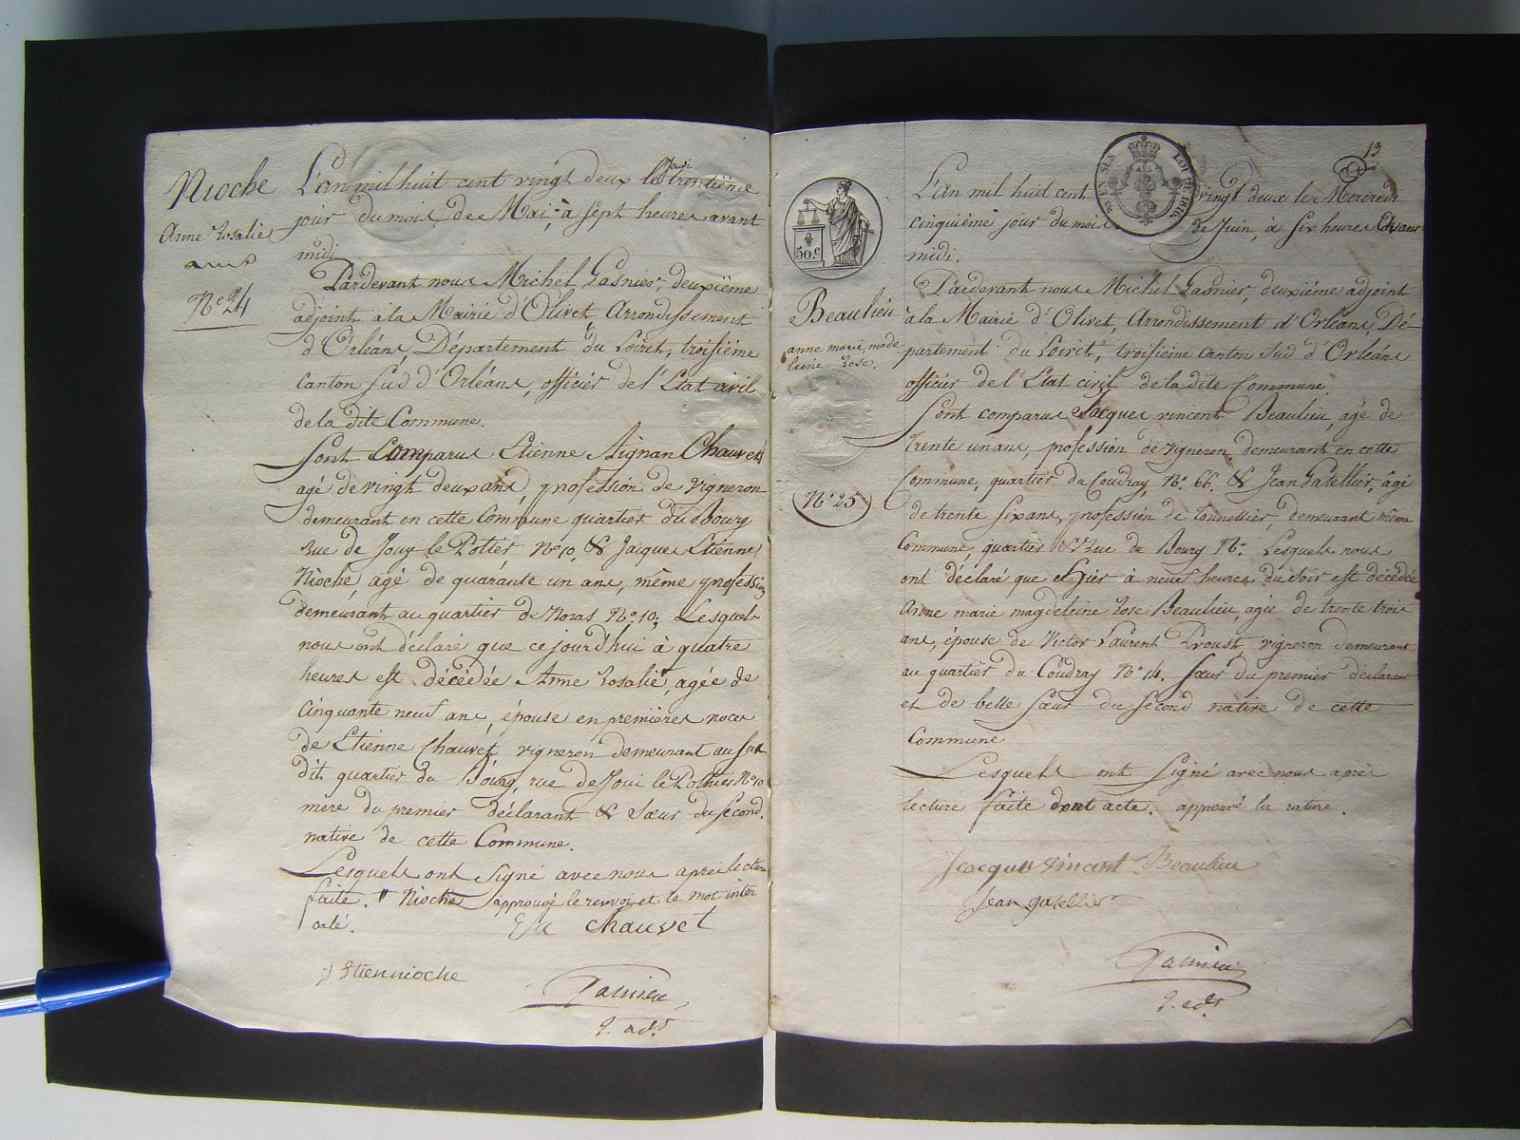 Nioche
Anne Rosalie
N° 24
L'an mil huit cent vingt deux le Jeudi trentième
jour du mois de Mai, à sept heures avant
midi
Pardevant nous Michel Gasnier, deuxième
adjoint à la Mairie d'Olivet, Arrondissement
d'Orléans, Département du Loiret, troisième
Canton Sud d'Orléans, officier de l'Etat civil
de la dite Commune.
Sont Comparus Etienne Aignan Chauvet
agé de vingt deux ans, profession de vigneron
demeurant en cette Commune quartier du Bourg
Rue de Jouy le Potier, N° 10, & Jacques Etienne
Nioche, agé de quarante un ans, même profession
demeurant au quartier de Noras N° 10; Lesquels
nous ont déclaré que ce jourd'hui à quatre
heures est décédée Anne Rosalie, agée de
Cinquante neuf ans, épouse en premières noces
de Etienne Chauvet, vigneron demeurant au sus
dit quartier du Bourg, rue de Joui le Pothier N° 10
mere du premier déclarant & Sœur du second.
native de cette Commune.
Lesquels ont Signé avec nous après lecture
faite. " Nioche approuvé le renvoi et le mot inter
calé.
Chauvet
J Etiennioche
2. adj.t
13
50 c
Beaulieu
anne marie, made
leine Rose.
N° 25
L'An mil huit cent vingt deux le Mercredi
cinquième jour du mois de Juin, à six heures du
midi.
Pardevant nous Michel Gasnier, deuxième adjoint
à la Mairie d'Olivet, Arrondissement d'Orléans, Dé-
partement du Loiret, troisième Canton Sud d'Orléans
officier de l'Etat civil de la dite Commune
Sont comparus Jacques vincent Beaulieu, agé de
trente un ans, profession de vigneron demeurant en cette
Commune, quartier du Coudray, N° 66. & Jean Gatellier, agé
de trente six ans, profession de tonnellier, demeurant même
Commune, quartier & Rue du Bourg N° Lesquels nous
ont déclaré que Hier à neuf heures du soir est décédée
Anne marie magdeleine Rose Beaulieu, agée de trente trois
ans, épouse de Victor Laurent Proust, vigneron demeurant
au quartier du Coudray N° 14. Sœur du premier déclarant
et de belle Sœur du second native de cette
Commune
Lesquels ont Signé avec nous après
lecture faite dont acte. approuvé la rature.
Jacques vincent Beaulieu
Jean gatellier
2. adj.t